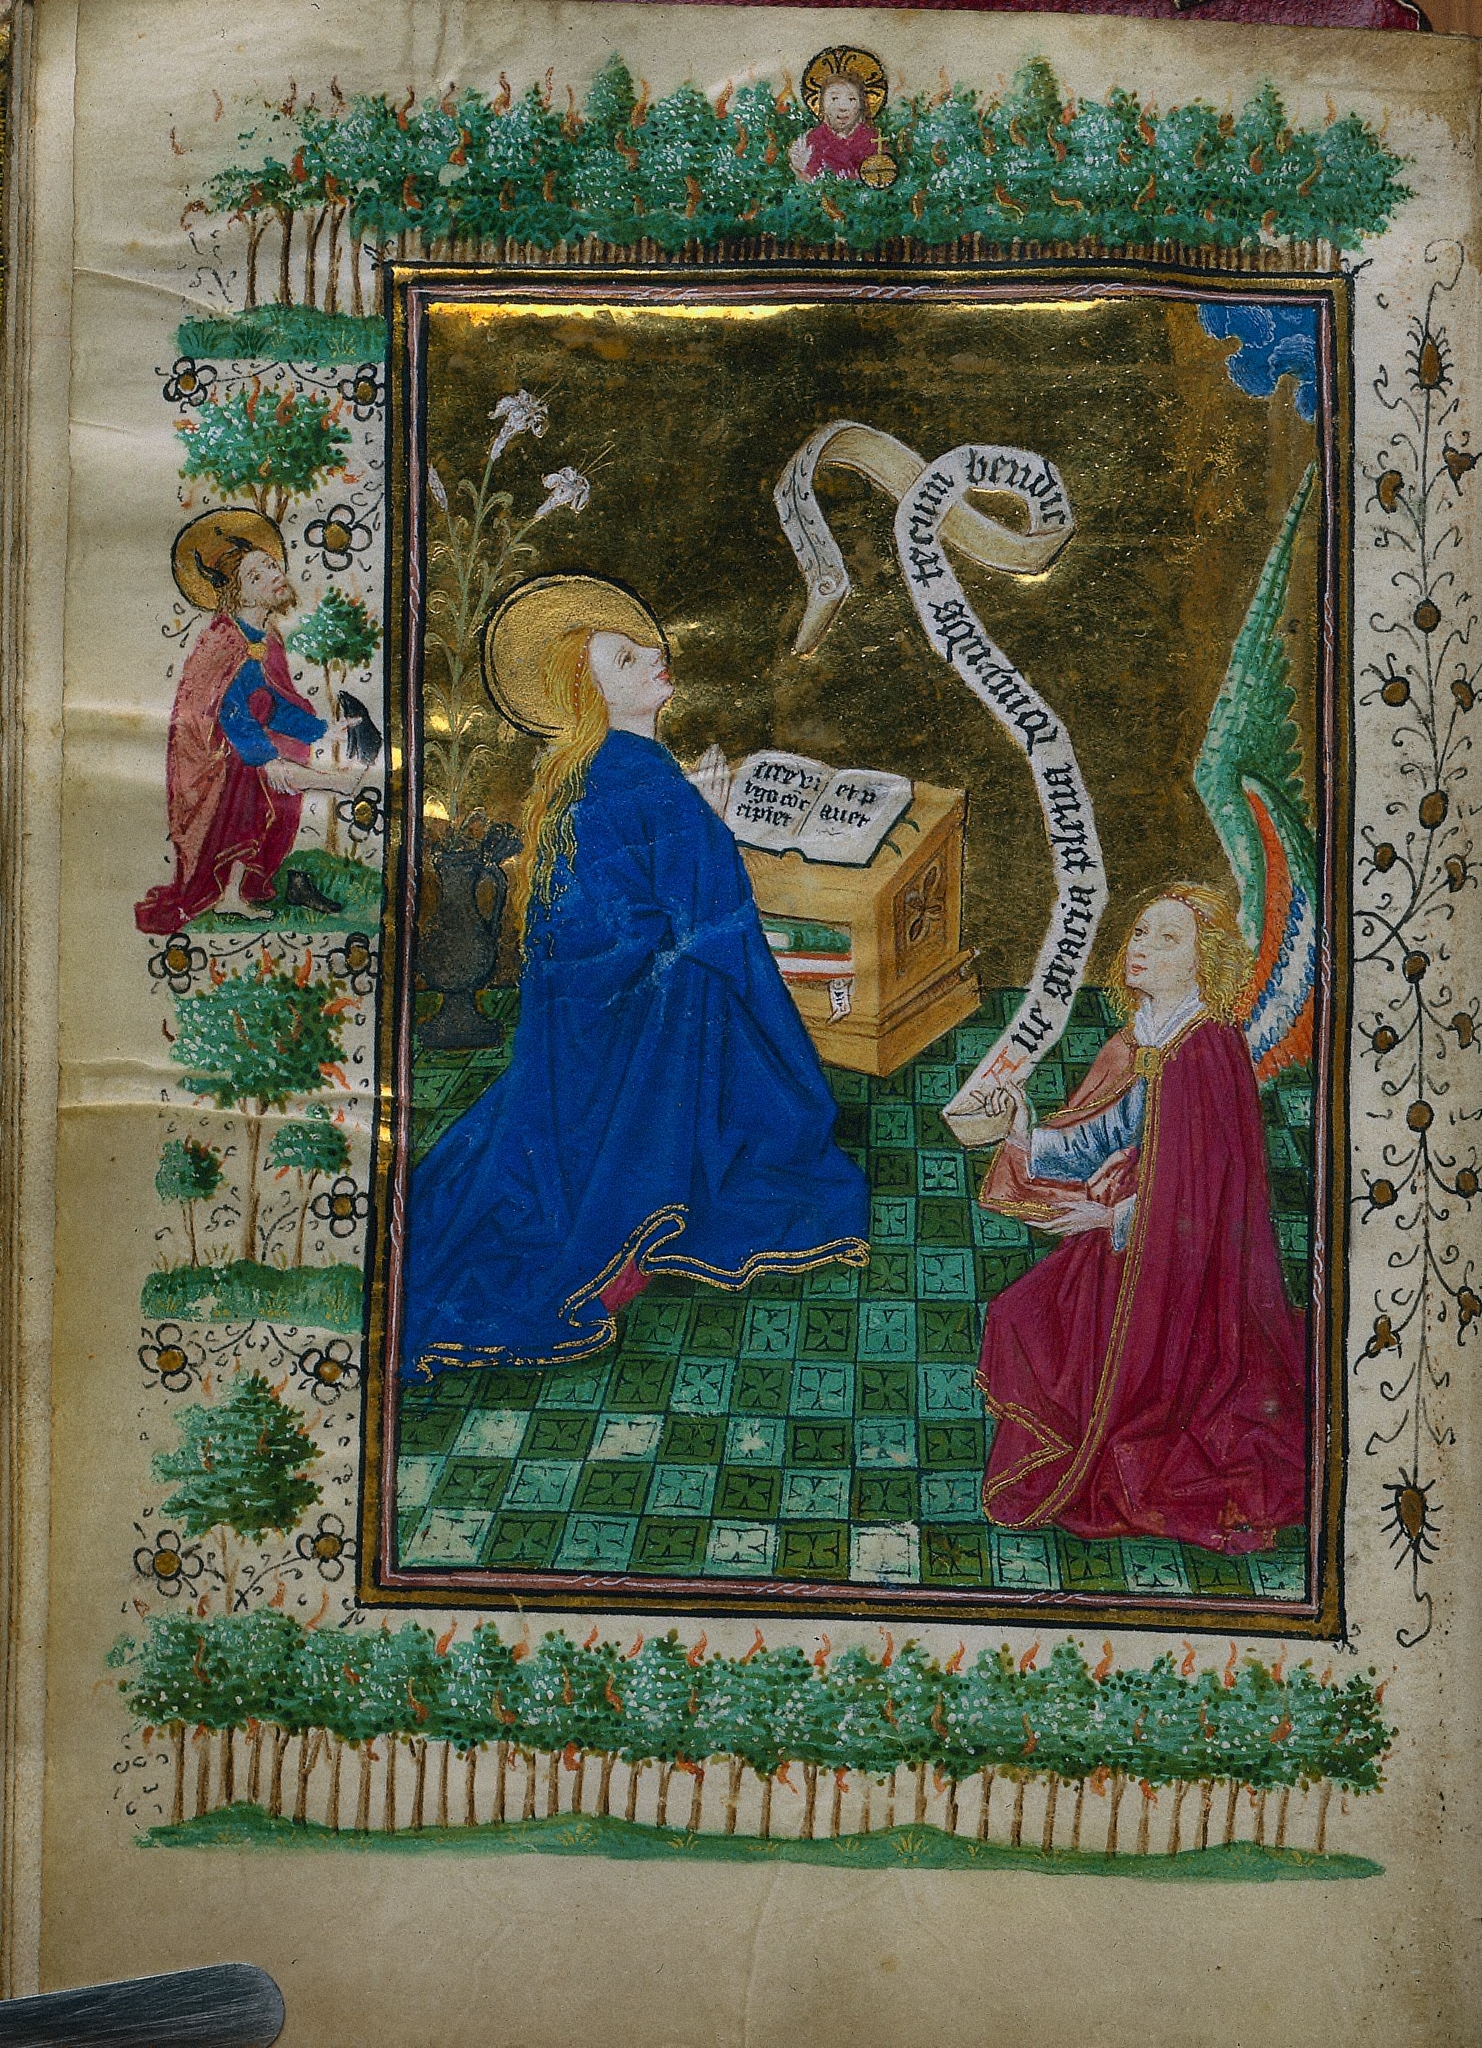 Aue gracia plena dominus tecum bendic
ecce vi
rgo coc
cipiet
et p